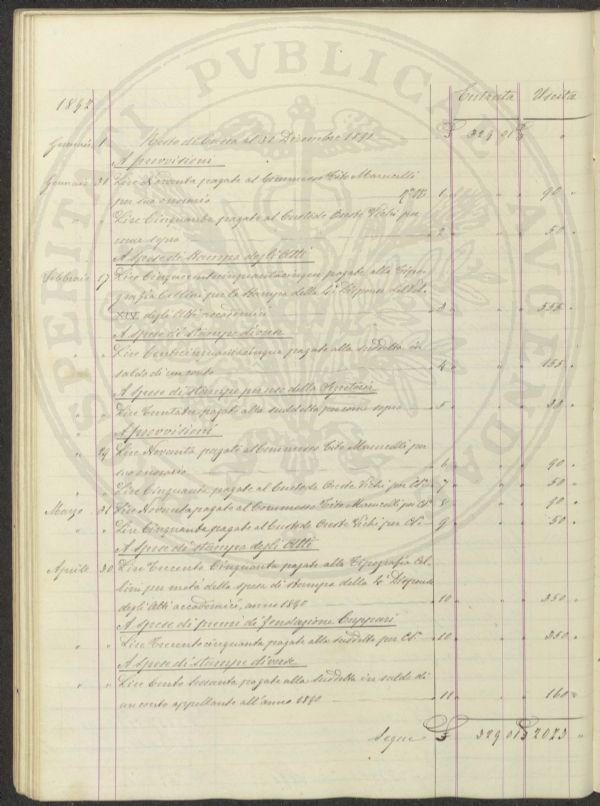 Entrata Uscita
1892
Gennaio 1 Resto di Cassa al 31 Dicembre 1891 £ 329 01 £ "
A provvisioni
Gennaio 31 Lire Novanta pagate al Commesso Tito Marucelli
per suo onorario 1 " " 90 "
" " Lire Cinquanta pagate al Custode Oreste Vichi per
come sopra 2 " " 50 "
A Spese di Stampa degli Atti
Febbraio 17 Lire Cinquecentocinquantacinque pagate alla Tipo-
grafia Cellini per la stampa della 4ª Dispensa del Vol.
XIV. degli Atti accademici 3 " " 555 "
A Spese di Stampe diverse
" " Lire Centocinquantacinque pagate alla suddetta in
saldo di un conto 4 " " 155 "
A Spese di Stampe per uso della Segreteria
" " Lire Trentatre pagate alla suddetta per come sopra 5 " " 33 "
A provvisioni
" 29 Lire Novanta pagate al Commesso Tito Marucelli per
suo onorario 6 " " 90 "
" " Lire Cinquanta pagate al Custode Oreste Vichi per Cs. 7 " " 50 "
Marzo 31 Lire Novanta pagate al Commesso Tito Marucelli per Cs. 8 " " 90 "
" " Lire Cinquanta pagate al Custode Oreste Vichi per Cs. 9 " " 50 "
A Spese di Stampa degli Atti
Aprile 30 Lire Trecento Cinquanta pagate alla Tipografia Cel-
lini per metà della spesa di stampa della 4ª Dispensa
degli Atti accademici, anno 1890 10 " " 350 "
A Spese di premi di fondazione Cuppari
" " Lire Trecento cinquanta pagate alla suddetta per Cs. 10 " " 350 "
A Spese di Stampe diverse
" " Lire Cento Sessanta pagate alla Suddetta in saldo di
un conto appellante all'anno 1890 11 " " 160 "
Segue £ 329 01 £ 2023 "
PROSPERITATI PVBLICAE AVGENDAE